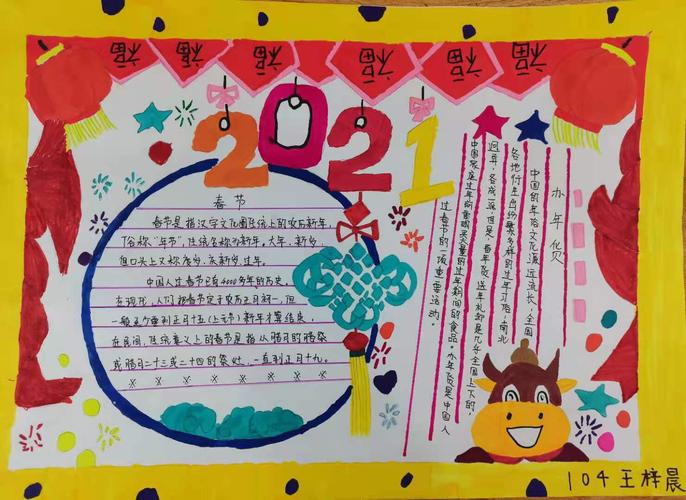 福 福 福 福 福 福
2021
春节
春节是指汉字文化圈传统上的农历新年,
俗称"年节",传统名称为新年、大年、新岁,
但口头上又称度岁、庆新岁、过年。
中国人过春节已有4000多年的历史。
在现代,人们把春节定于农历正月初一,但
一般至少要到正月十五(上元节)新年才算结束,
在民间,传统意义上的春节是指从腊月的腊祭
或腊月二十三或二十四的祭灶,一直到正月十九。
办年货
中国的年俗文化源远流长,全国
各地衍生出纷繁多样的过年习俗,南北
迥异,各成一派,但是,每年货送年礼却是几乎全国上下的,
中国家庭过年前要购买大量的过年期间的食品。办年货是中国人
过春节的一项重要活动。
104王梓晨